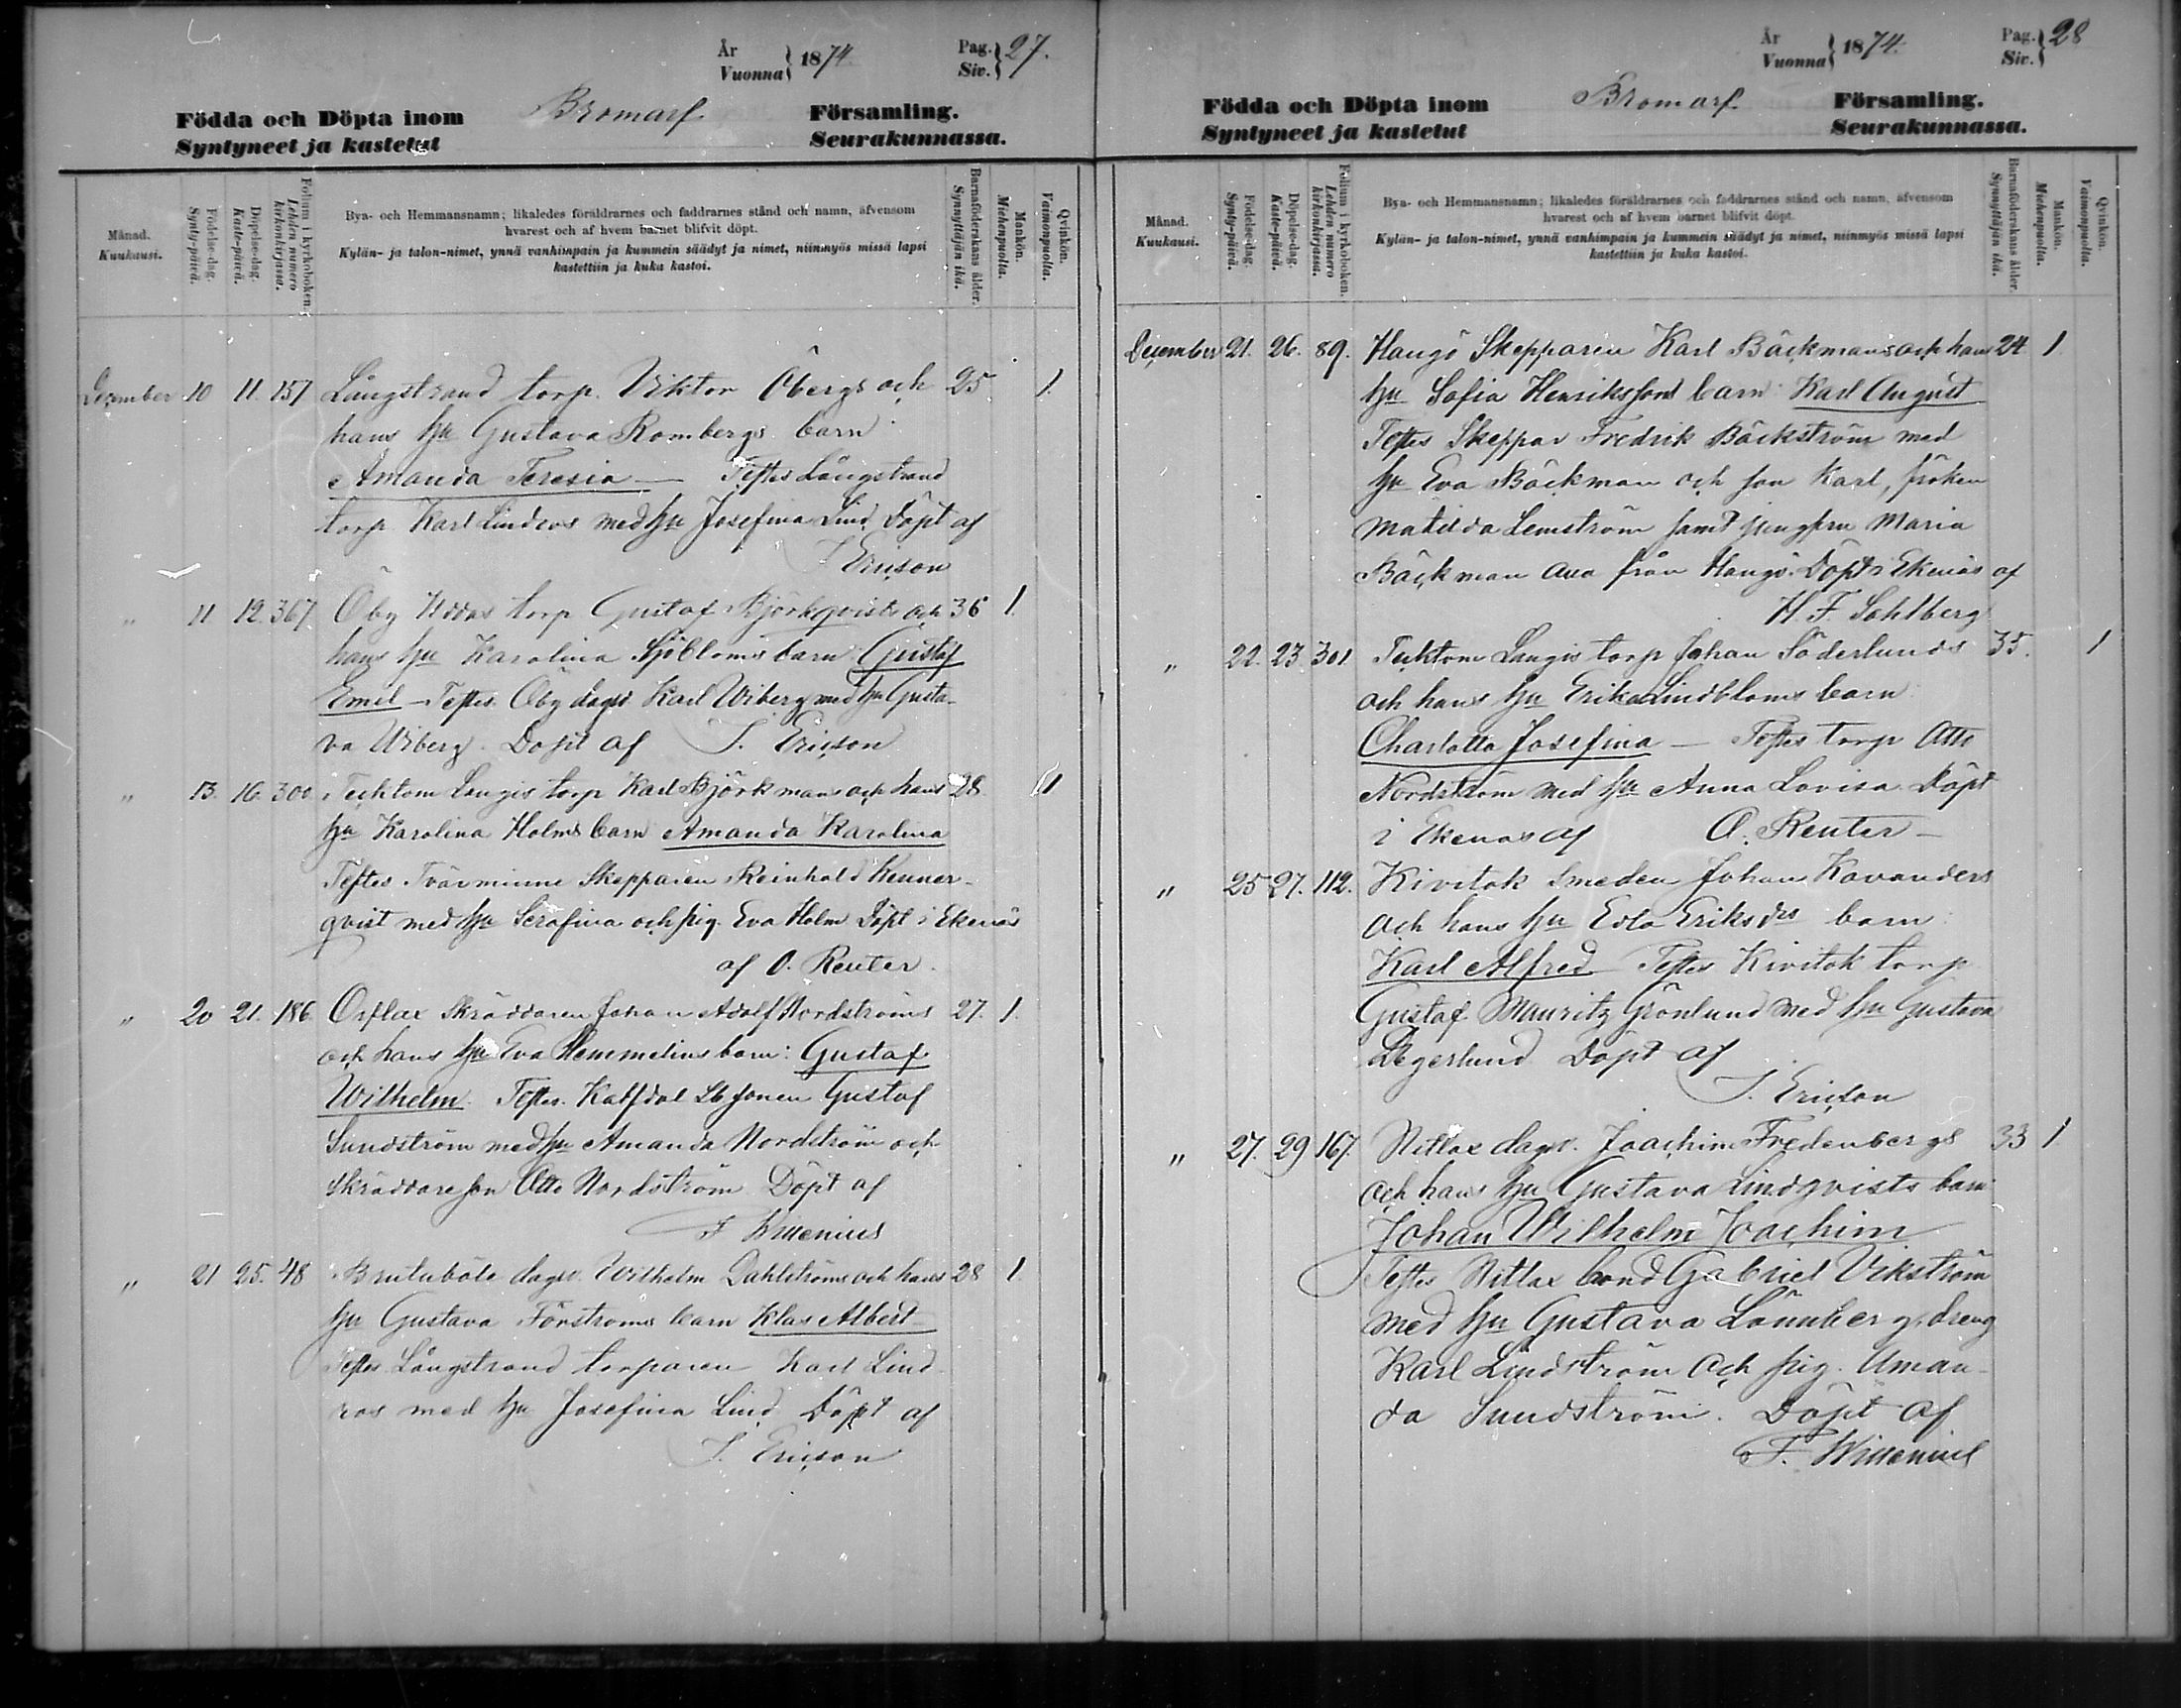 År
Vuonna } 1874.
Pag.
Siv. } 27.
Födda och Döpta inom Bromarf Församling.
Syntyneet ja kastetut Seurakunnassa.
Månad.
Kuukausi.
Födelse-dag.
Synty-päivä.
Döpelse-dag.
Kaste-päivä.
Folium i kyrkoboken.
Lehden numero
kirkonkirjassa.
Bya- och Hemmansnamn; likaledes föräldrarnes och faddrarnes stånd och namn, äfvensom
hvarest och af hvem barnet blifvit döpt.
Kylän- ja talon-nimet, ynnä vanhimpain ja kummein säädyt ja nimet, niinmyös missä lapsi
kastettiin ja kuka kastoi.
Barnaföderskans ålder.
Synnyttäjän ikä.
Mankön.
Miehenpuolta.
Qvinkön.
Vaimonpuolta.
December 10 11. 157 Långstrand torp. Viktor Öbergs och 25 1.
hans hu Gustava Rombergs barn
Amanda Teresia — Testes Långstrand
torp Karl Lindros med hu Josefina Lind Döpt af
Ericson
" 11 12. 367 Öby torp Gustaf Björkqvists och 36 1.
hans hu Karolina Sjöbloms barn Gustaf
Emil — Testes Öby dagsv Karl Wiberg med hu Gusta-
va Wiberg. Döpt af J. Ericson
" 13. 16. 300. Tecktom Langis torp Karl Björkmans och hans 28 1
hu Karolina Holms barn Amanda Karolina
Testes Tvärminne Skepparen Reinhold Renner-
qvist med hu Serafina och pig. Eva Holm Döpt i Ekenäs
af O. Reuter.
" 20 21. 186. Orflax Skräddaren Johan Adolf Nordströms 27. 1.
och hans hu Eva Hemmelins barn: Gustaf
Wilhelm. Testes. Kalfdal sonen Gustaf
Sundström med hu Amanda Nordström och
Skräddareson Otto Nordström Döpt af
F Willenius
" 21 25. 48 Bruteböle dagsv. Wilhelm Dahlströms och hans 28 1.
hu Gustava Förstroms barn Klas Albert
Testes Långstrand torparen Karl Lind-
ros med hu Josefina Lind Döpt af
J. Ericson
År
Vuonna } 1874.
Pag.
Siv. } 28
Födda och Döpta inom Bromarf Församling.
Syntyneet ja kastetut Seurakunnassa.
Månad.
Kuukausi.
Födelse-dag.
Synty-päivä.
Döpelse-dag.
Kaste-päivä.
Folium i kyrkoboken.
Lehden numero
kirkonkirjassa.
Bya- och Hemmansnamn; likaledes föräldrarnes och faddrarnes stånd och namn, äfvensom
hvarest och af hvem barnet blifvit döpt.
Kylän- ja talon-nimet, ynnä vanhimpain ja kummein säädyt ja nimet, niinmyös missä lapsi
kastettiin ja kuka kastoi.
Barnaföderskans ålder.
Synnyttäjän ikä.
Mankön.
Miehenpuolta.
Qvinkön.
Vaimonpuolta.
December 21. 26. 89. Hangö Skepparen Karl Bäckmans och hans 24 1.
hu Sofia Henrikssons barn Karl August
Testes Skeppar Fredrik Bäckström med
hu Eva Bäckman och son Karl, fröken
Matilda Lemström samt jungfru Maria
Bäckman alla från Hangö. Döpt i Ekenäs af
H. F. Sohlberg
" 22. 23. 301 Tecktom Langis torp Johan Söderlunds 35. 1
och hans hu Erika Lindbloms barn
Charlotta Josefina — Testes torp Otto
Nordström med hu Anna Lovisa. Döpt
i Ekenäs af O. Reuter —
" 25 27. 112. Kivitok Smeden Johan Kavanders
och hans hu Edla Eriksdrs barn
Karl Alfred Testes Kivitok torp
Gustaf Mauritz Grönlund med hu Gustava
Degerlund Döpt af
J. Ericson
" 27. 29 167. Nitlax dagsv. Joachim Fredenbergs 33 1.
och hans hu Gustava Lindqvists barn
Johan Wilhelm Joachim
Testes Nitlax bond Gabriel Vikström
med hu Gustava Lönnberg, dreng
Karl Lindström och pig. Aman-
da Sundström. Döpt af
F. Willenius